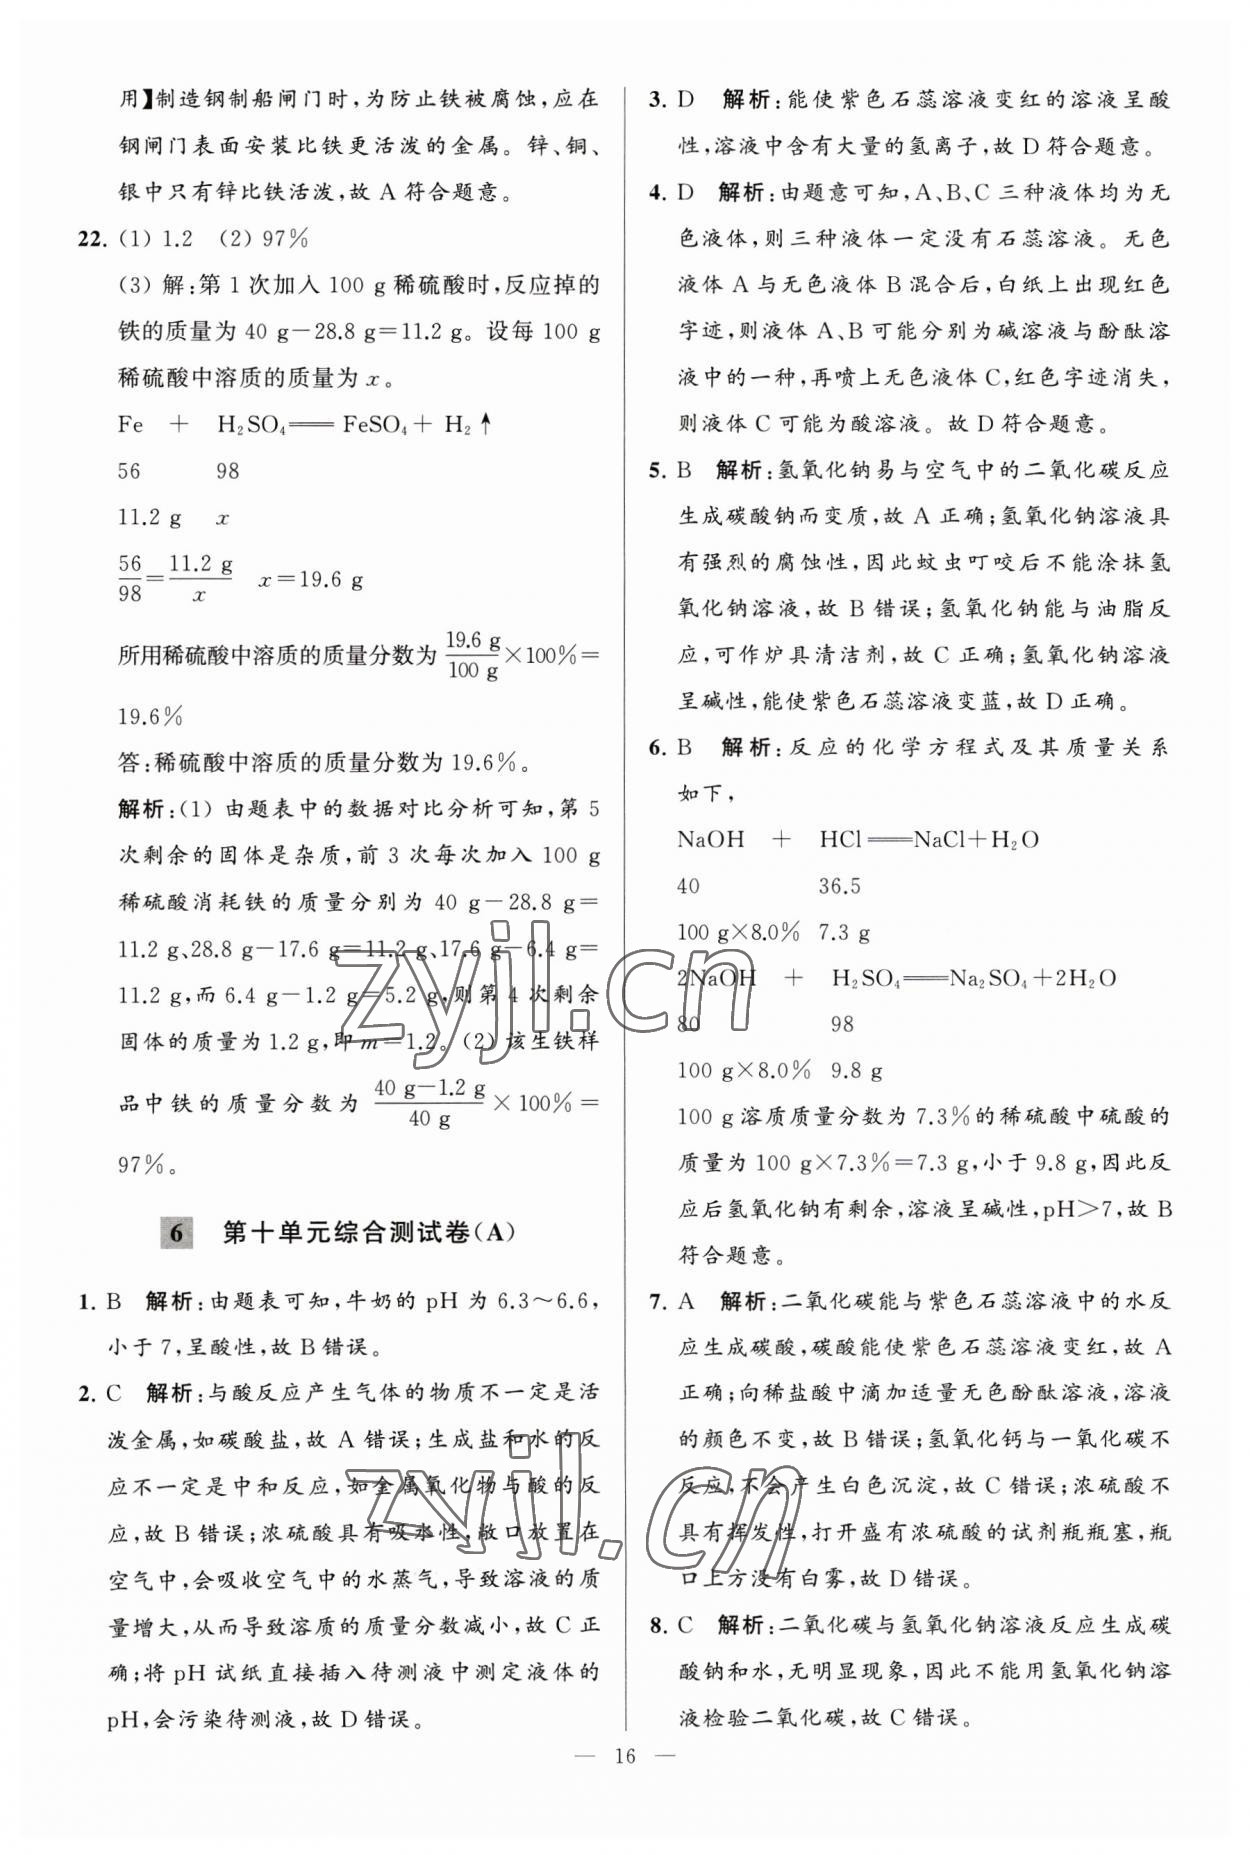 用】制造钢制船闸门时,为防止铁被腐蚀,应在
钢闸门表面安装比铁更活泼的金属。锌、铜、
银中只有锌比铁活泼,故 A 符合题意。
22. (1) 1.2 (2) 97%
(3) 解:第 1 次加入 100 g 稀硫酸时,反应掉的
铁的质量为 40 g－28.8 g＝11.2 g。设每 100 g
稀硫酸中溶质的质量为 x。
Fe + H₂SO₄══FeSO₄+ H₂↑
56 98
11.2 g x
56/98＝11.2 g/x x＝19.6 g
所用稀硫酸中溶质的质量分数为 19.6 g/100 g×100%＝
19.6%
答:稀硫酸中溶质的质量分数为 19.6%。
解析:(1) 由题表中的数据对比分析可知,第 5
次剩余的固体是杂质,前 3 次每次加入 100 g
稀硫酸消耗铁的质量分别为 40 g－28.8 g＝
11.2 g、28.8 g－17.6 g＝11.2 g、17.6 g－6.4 g＝
11.2 g,而 6.4 g－1.2 g＝5.2 g,则第 4 次剩余
固体的质量为 1.2 g,即 m＝1.2。(2) 该生铁样
品中铁的质量分数为 (40 g－1.2 g)/40 g×100%＝
97%。
6 第十单元综合测试卷(A)
1. B 解析:由题表可知,牛奶的 pH 为 6.3～6.6,
小于 7,呈酸性,故 B 错误。
2. C 解析:与酸反应产生气体的物质不一定是活
泼金属,如碳酸盐,故 A 错误;生成盐和水的反
应不一定是中和反应,如金属氧化物与酸的反
应,故 B 错误;浓硫酸具有吸水性,敞口放置在
空气中,会吸收空气中的水蒸气,导致溶液的质
量增大,从而导致溶质的质量分数减小,故 C 正
确;将 pH 试纸直接插入待测液中测定液体的
pH,会污染待测液,故 D 错误。
3. D 解析:能使紫色石蕊溶液变红的溶液呈酸
性,溶液中含有大量的氢离子,故 D 符合题意。
4. D 解析:由题意可知,A、B、C 三种液体均为无
色液体,则三种液体一定没有石蕊溶液。无色
液体 A 与无色液体 B 混合后,白纸上出现红色
字迹,则液体 A、B 可能分别为碱溶液与酚酞溶
液中的一种,再喷上无色液体 C,红色字迹消失,
则液体 C 可能为酸溶液。故 D 符合题意。
5. B 解析:氢氧化钠易与空气中的二氧化碳反应
生成碳酸钠而变质,故 A 正确;氢氧化钠溶液具
有强烈的腐蚀性,因此蚊虫叮咬后不能涂抹氢
氧化钠溶液,故 B 错误;氢氧化钠能与油脂反
应,可作炉具清洁剂,故 C 正确;氢氧化钠溶液
呈碱性,能使紫色石蕊溶液变蓝,故 D 正确。
6. B 解析:反应的化学方程式及其质量关系
如下,
NaOH + HCl══NaCl＋H₂O
40 36.5
100 g×8.0% 7.3 g
2NaOH + H₂SO₄══Na₂SO₄＋2H₂O
80 98
100 g×8.0% 9.8 g
100 g 溶质质量分数为 7.3%的稀硫酸中硫酸的
质量为 100 g×7.3%＝7.3 g,小于 9.8 g,因此反
应后氢氧化钠有剩余,溶液呈碱性,pH＞7,故 B
符合题意。
7. A 解析:二氧化碳能与紫色石蕊溶液中的水反
应生成碳酸,碳酸能使紫色石蕊溶液变红,故 A
正确;向稀盐酸中滴加适量无色酚酞溶液,溶液
的颜色不变,故 B 错误;氢氧化钙与一氧化碳不
反应,不会产生白色沉淀,故 C 错误;浓硫酸不
具有挥发性,打开盛有浓硫酸的试剂瓶瓶塞,瓶
口上方没有白雾,故 D 错误。
8. C 解析:二氧化碳与氢氧化钠溶液反应生成碳
酸钠和水,无明显现象,因此不能用氢氧化钠溶
液检验二氧化碳,故 C 错误。
— 16 —
zyjl.cn
zyjl.cn